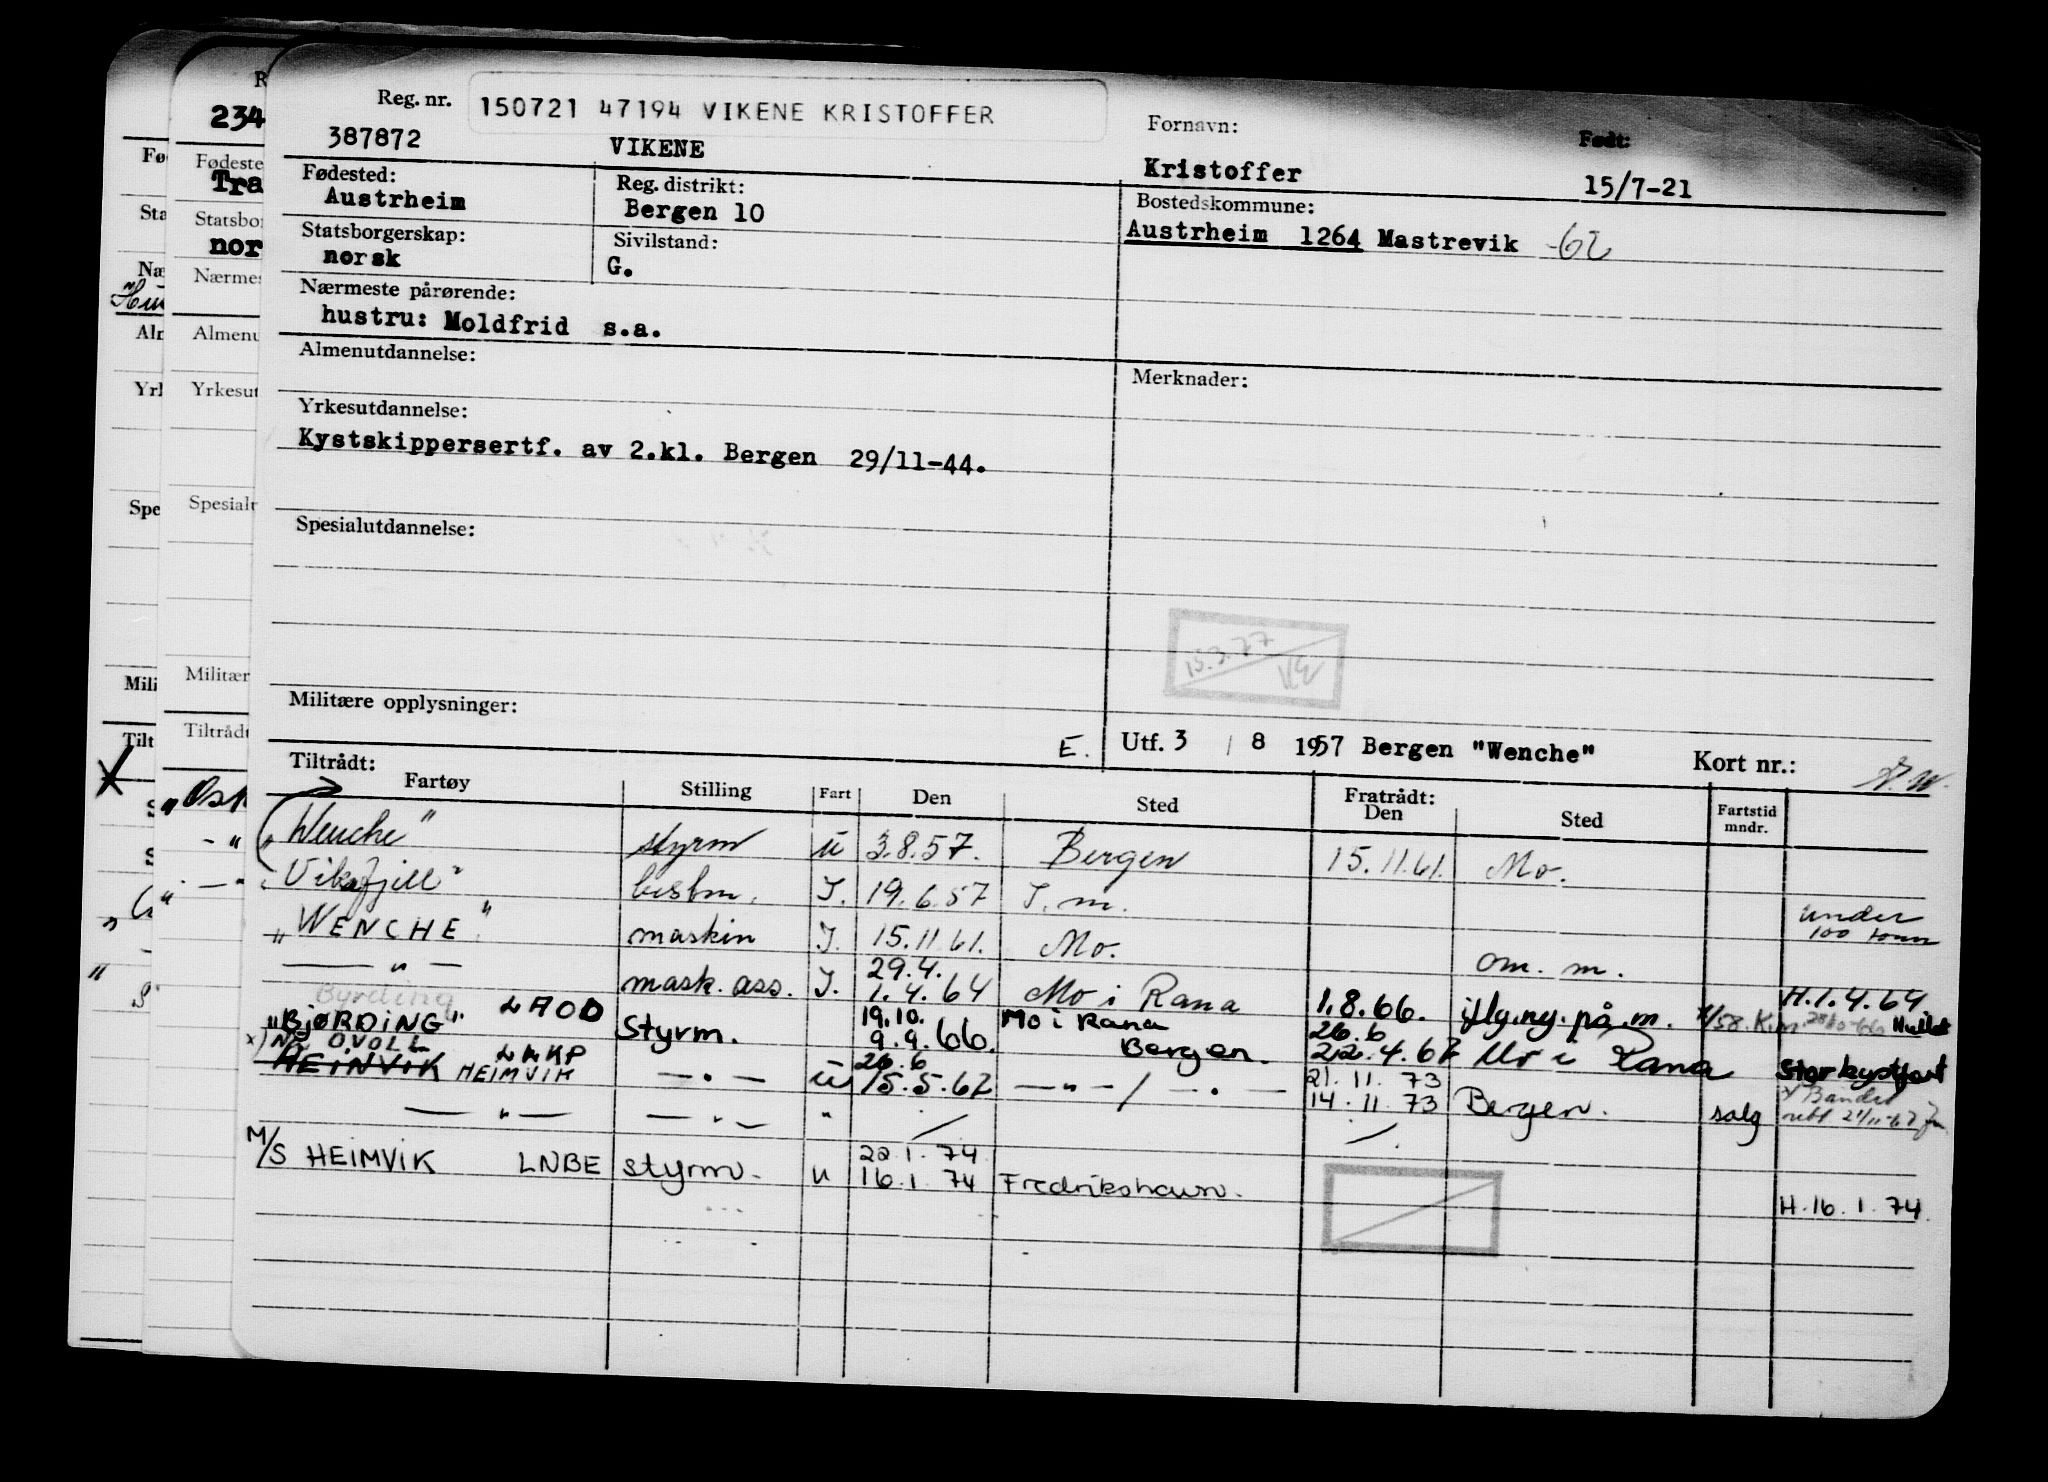 Reg. nr.
150721 47194 VIKENE KRISTOFFER
387872 VIKENE
Fornavn: Født:
Kristoffer 15/7-21
Fødested: Reg. distrikt: Bostedskommune:
Austrheim Bergen 10 Austrheim 1264 Mastrevik -62
Statsborgerskap: Sivilstand:
norsk G.
Nærmeste pårørende:
hustru: Moldfrid s.a.
Almenutdannelse: Merknader:
Yrkesutdannelse:
Kystskippersertf. av 2.kl. Bergen 29/11-44.
Spesialutdannelse:
15.3.77
Militære opplysninger:
E. Utf. 3 / 8 1957 Bergen "Wenche" Kort nr.:
Tiltrådt: Fratrådt:
Fartøy Stilling Fart Den Sted Den Sted Fartstid mndr.
"Wenche" styrm u 3.8.57. Bergen 15.11.61. Mo.
"Viksfjell" bestm. I. 19.6.57 I. m. under 100 tonn
"WENCHE" maskin I. 15.11.61. Mo. om. m.
— " — mask. ass. I. 29.4. 1.4.64 Mo i Rana 1.8.66. H.1.4.64
Byrding
"BJØRDING" LAOD Styrm. 19.10. 9.9.66. Mo i Rana Bergen. 26.6 22.4.67 Mo i Rana Stor kystfart
HEINVIK HEIMVIK — " — u 26.6 15.5.67 — " — / — " — 21.11.73 14.11.73 Bergen. salg
— " — — " — " / /.
M/S HEIMVIK LNBE styrm. u 22.1.74 16.1.74 Fredrikshavn. H.16.1.74.
234
Fødeste
Tra
Statsbo
nor
Nærmes
Almenu
Yrkesut
Spesialu
Militær
Tiltrådt
Sta
Yrk
Spe
Mili
Tilt